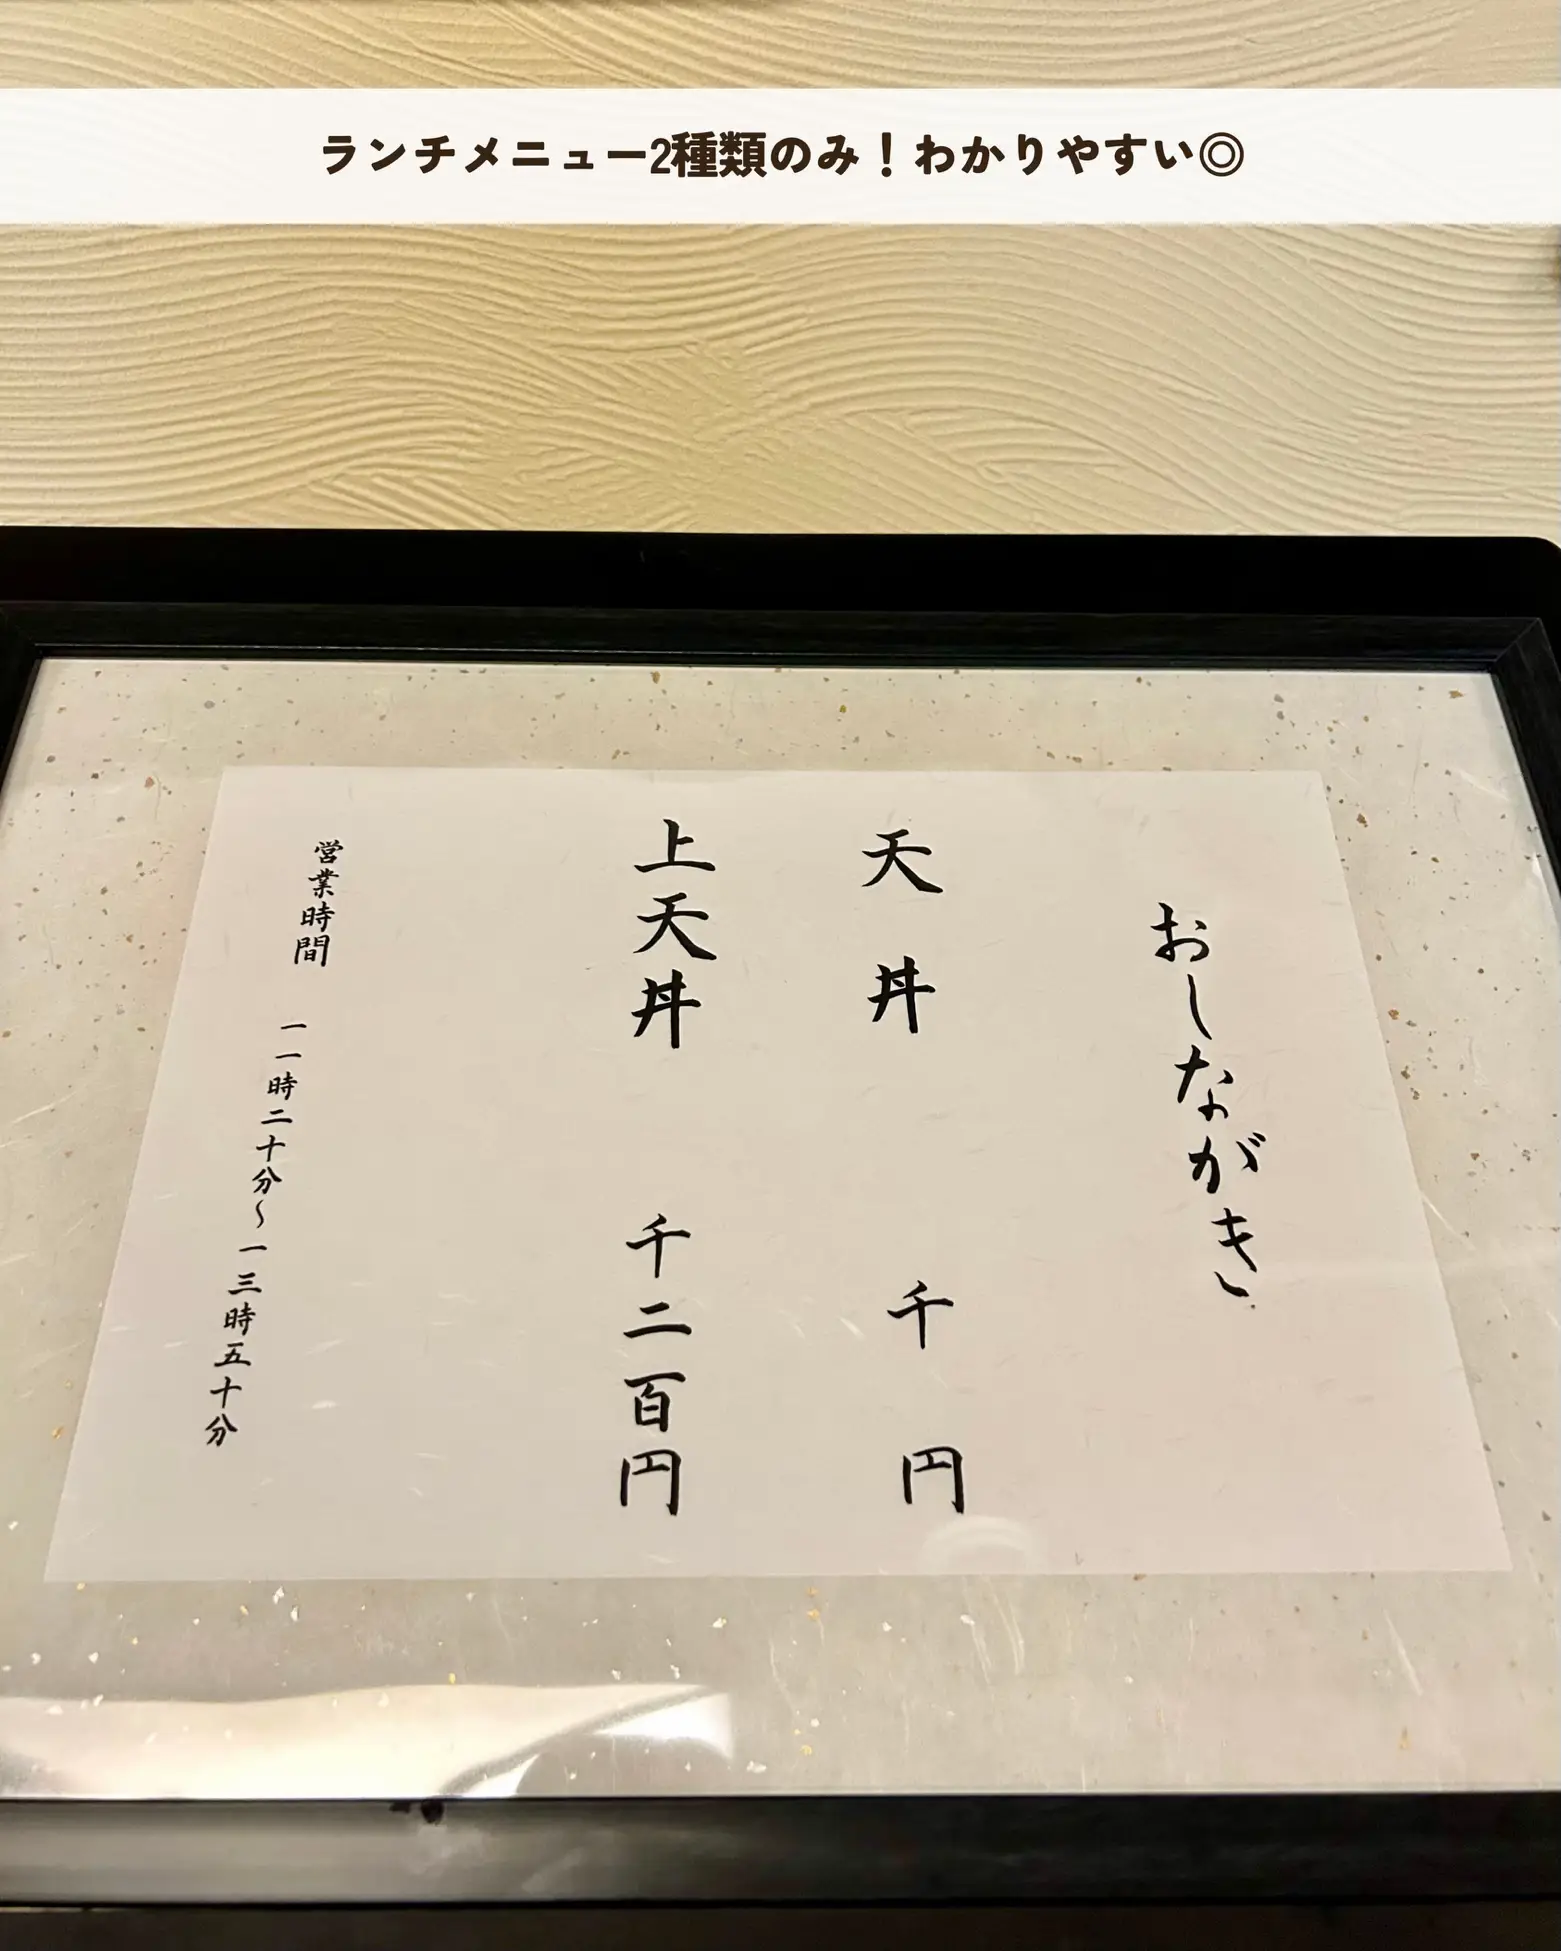 ランチメニュー2種類のみ！わかりやすい◎
おしながき
天丼 千円
上天丼 千二百円
営業時間 一一時二十分〜一三時五十分